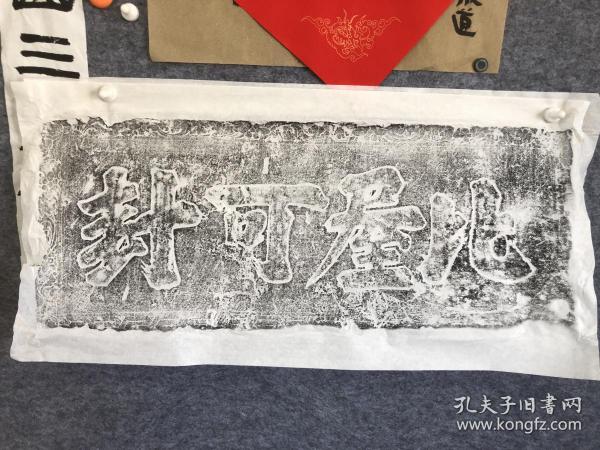 三
道
比屋可封
孔夫子旧书网
www.kongfz.com